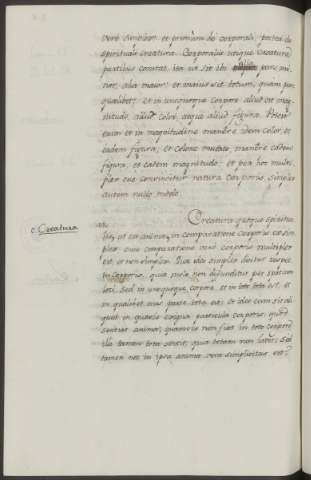 verè simplex. et primùm de corporali, postea de
spirituali creatura. Corporalis utique creatura
partibus constat, ita ut sit ibi pars mi-
nor, alia maior: et maius sit totum, quàm pars
quælibet: et in unoquoque corpore aliud est mag-
nitudo, aliud color, aliud figura. Potest
enim et in magnitudine manere idem color, et
eadem figura, et colore mutato manere eadem
figura, et eadem magnitudo: et per hoc multi-
plex esse convincitur natura corporis, simplex
autem nullo modo.
Creatura quoque spiritua-
c. Creatura
lis, ut est anima, in comparatione corporis est sim-
plex: sine comparatione vero corporis multiplex
est, et non simplex. Quæ ideo simplex dicitur respectu
corporis, quia mole non diffunditur per spatium
loci, sed in unoquoque corpore, et in toto tota est, et
in qualibet eius parte tota est: et ideo cum fit ali-
quid in quavis exigua particula corporis, quod
sentiat anima, quamvis non fiat in toto corpore,
illa tamen tota sentit, quia totam non latet. Sed
tamen nec in ipsa anima vera simplicitas est: